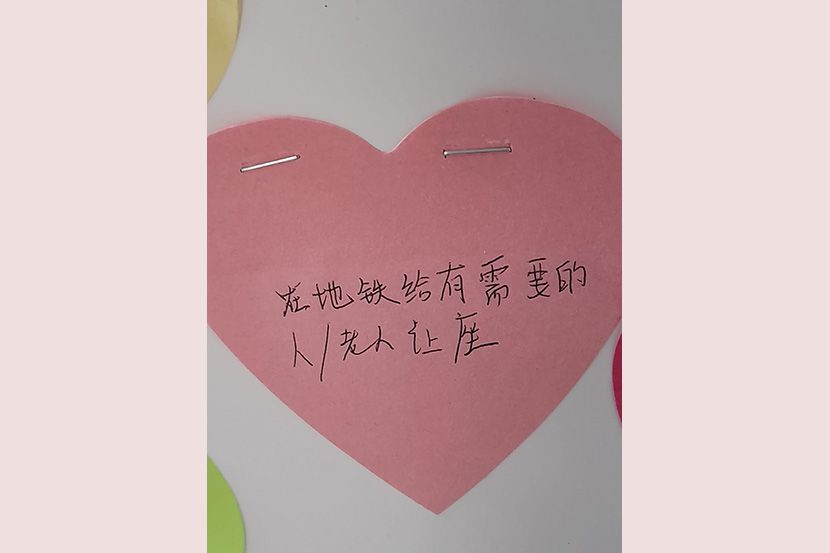 在地铁给有需要的
人/老人让座